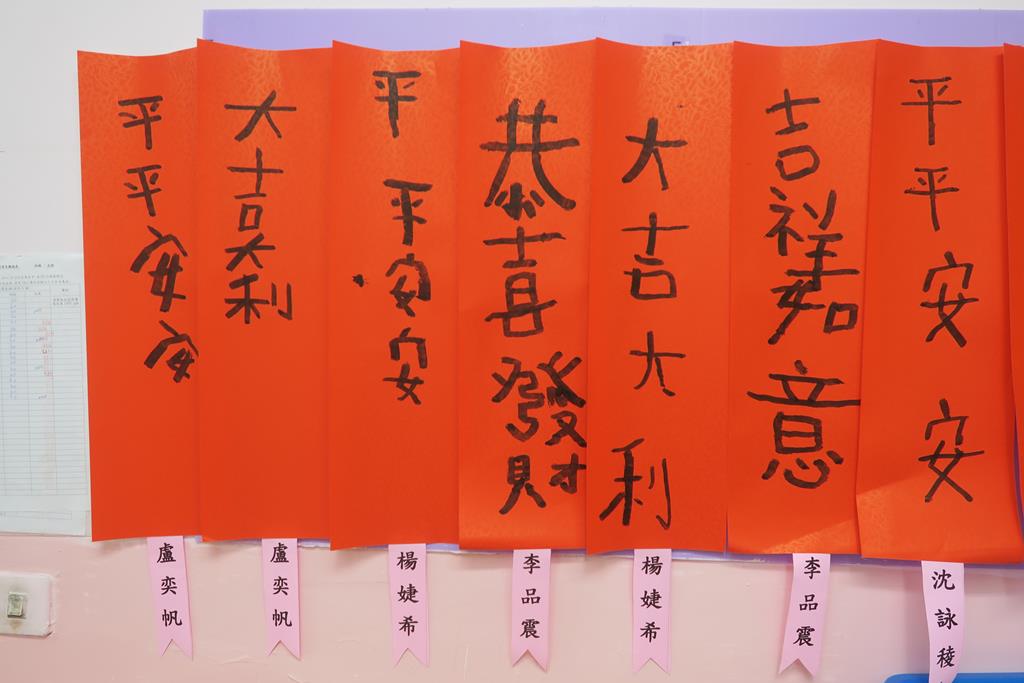 平平安安
大吉大利
平平安安
恭喜發財
大吉大利
吉祥如意
平平安安
盧奕帆
盧奕帆
楊婕希
李品震
楊婕希
李品震
沈詠稜